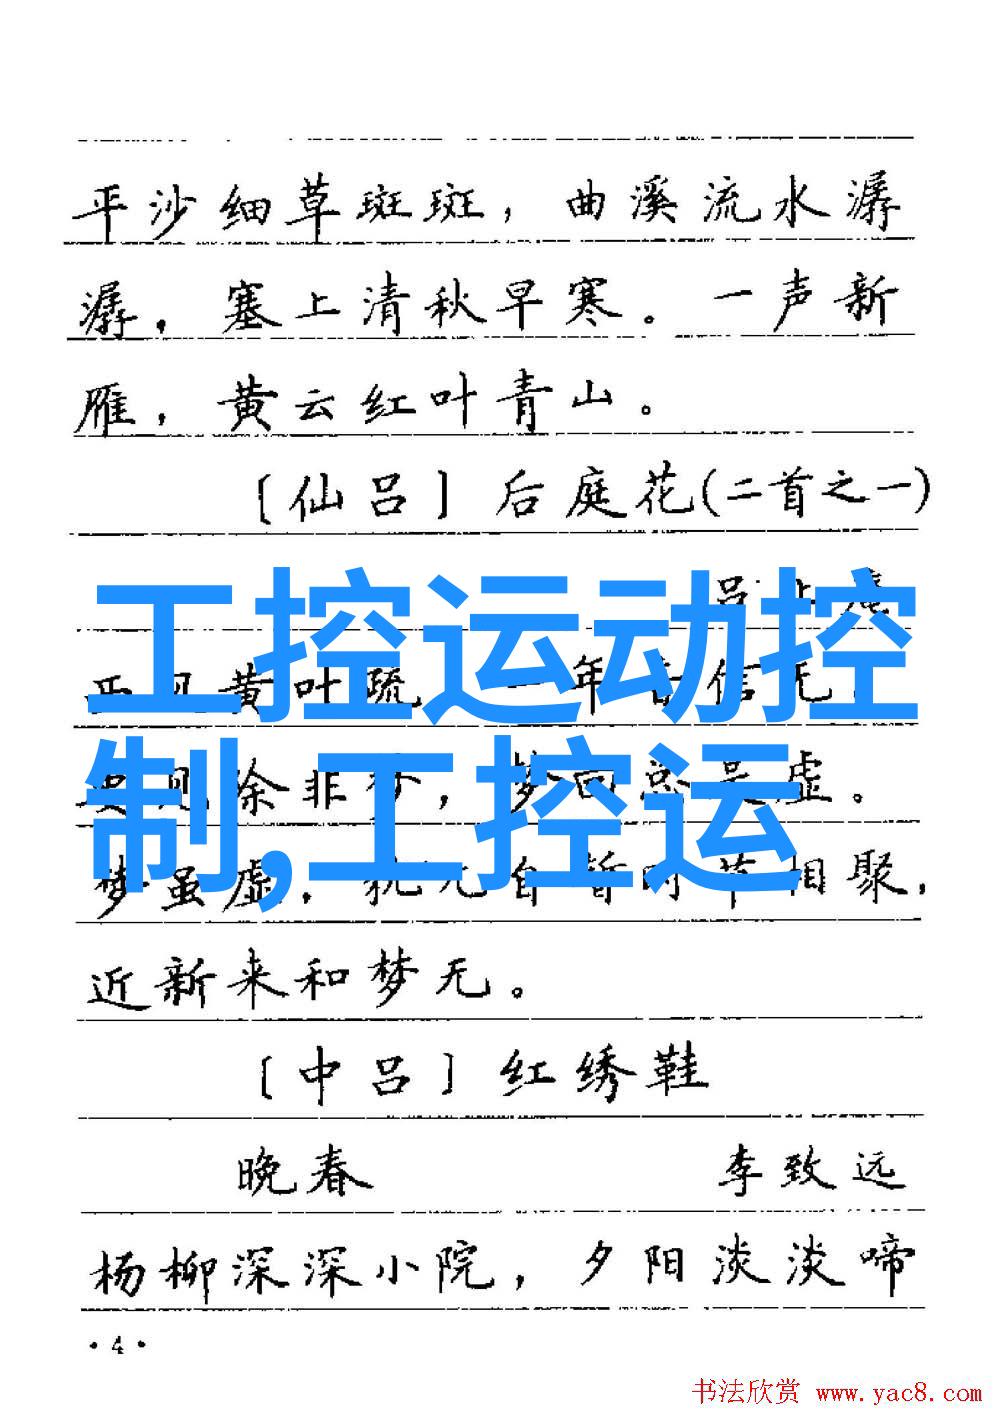 平沙细草斑斑，曲溪流水潺
潺，塞上清秋早寒。一声新
雁，黄云红叶青山。
〔仙吕〕后庭花(二首之一)
吕
工控运动控
黄叶疏 一年 信无
制,工控运
除非梦，梦回总是虚。
梦虽虚，犹兀自暂时节相聚，
近新来和梦无。
〔中吕〕红绣鞋
晚春 李致远
杨柳深深小院，夕阳淡淡啼
·4·
书法欣赏 www.yac8.com